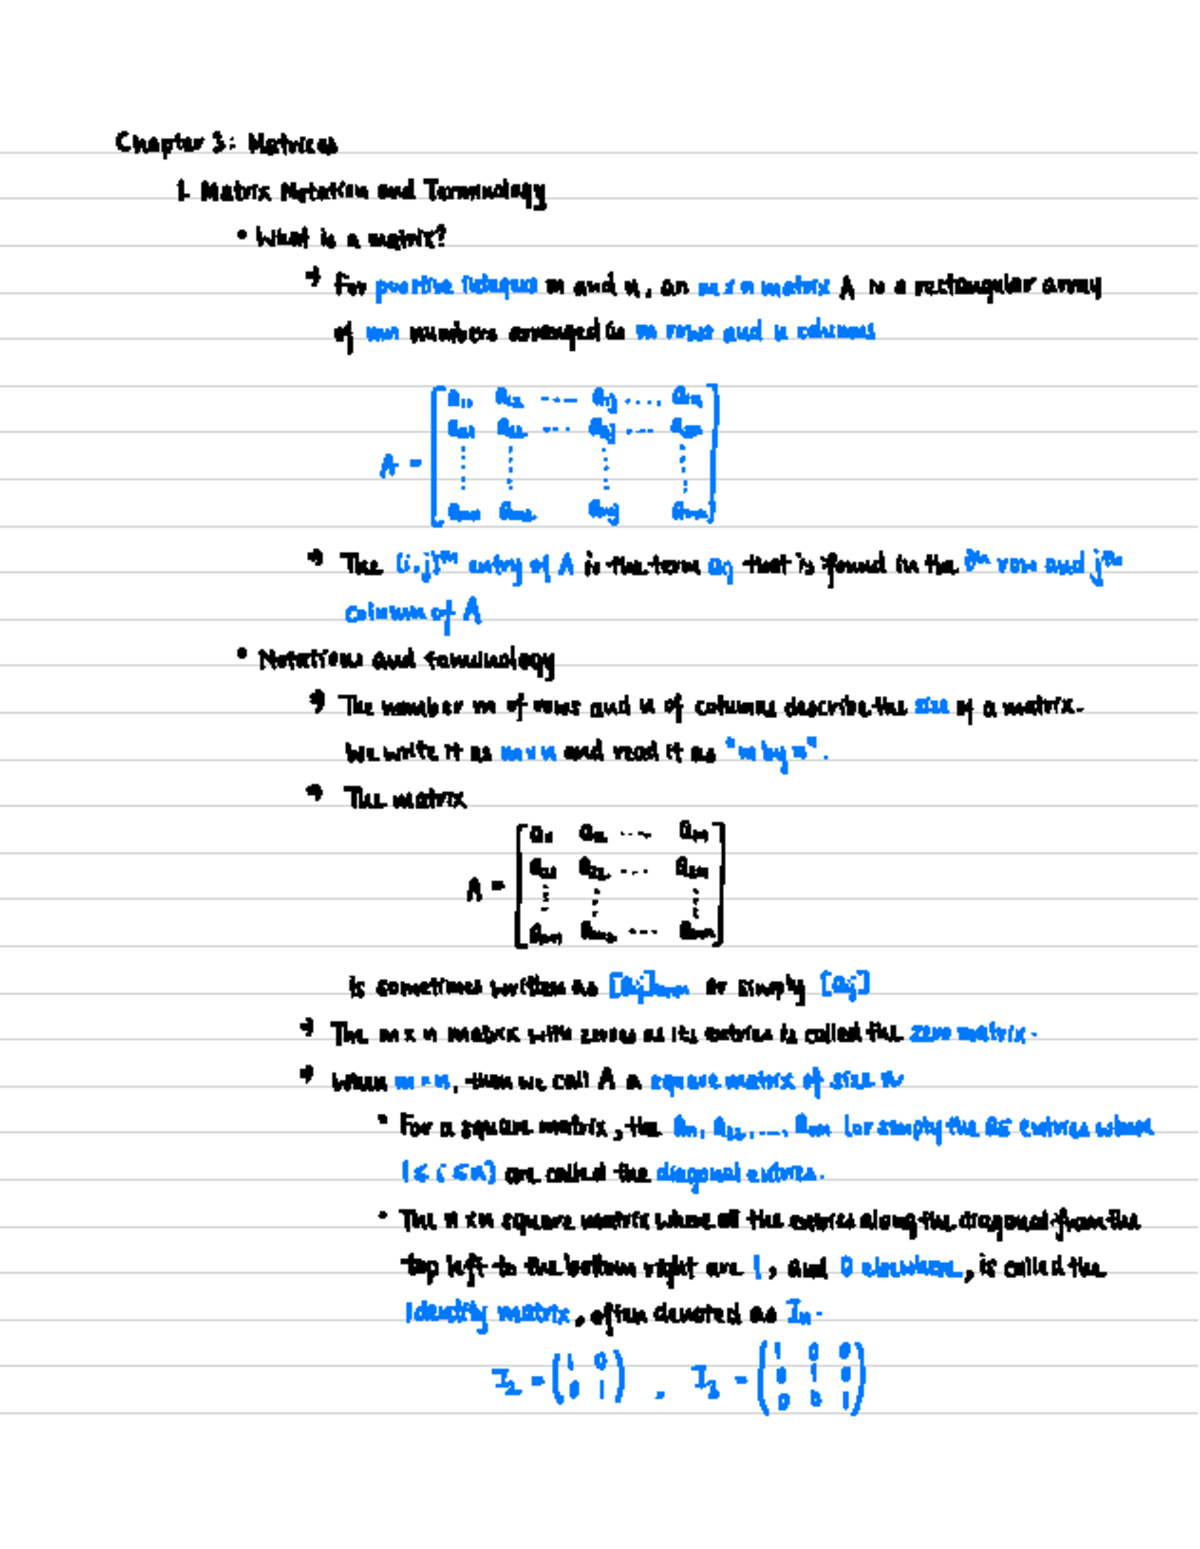 Chapter 3: Matrices
1. Matrix Notation and Terminology
• What is a matrix?
→ For positive integers m and n, an m x n matrix A is a rectangular array
of mn numbers arranged in m rows and n columns
A = [a₁₁ a₁₂ ... a₁ⱼ ... a₁ₙ
a₂₁ a₂₂ ... a₂ⱼ ... a₂ₙ
⋮ ⋮ ⋮ ⋮
aₘ₁ aₘ₂ aₘⱼ aₘₙ]
→ The (i,j)ᵗʰ entry of A is the term aᵢⱼ that is found in the iᵗʰ row and jᵗʰ
column of A
• Notations and terminology
→ The number m of rows and n of columns describe the size of a matrix.
We write it as m x n and read it as "m by n".
→ The matrix
A = [a₁₁ a₁₂ ... a₁ₙ
a₂₁ a₂₂ ... a₂ₙ
⋮ ⋮ ⋮
aₘ₁ aₘ₂ ... aₘₙ]
is sometimes written as [aᵢⱼ]ₘₓₙ or simply [aᵢⱼ]
→ The m x n matrix with zeroes as its entries is called the zero matrix.
→ When m = n, then we call A a square matrix of size n
• For a square matrix, the a₁₁, a₂₂, ..., aₙₙ (or simply the aᵢᵢ entries where
1 ≤ i ≤ n) are called the diagonal entries.
• The n x n square matrix where all the entries along the diagonal from the
top left to the bottom right are 1, and 0 elsewhere, is called the
Identity matrix, often denoted as Iₙ.
I₂ = (1 0
0 1) , I₃ = (1 0 0
0 1 0
0 0 1)